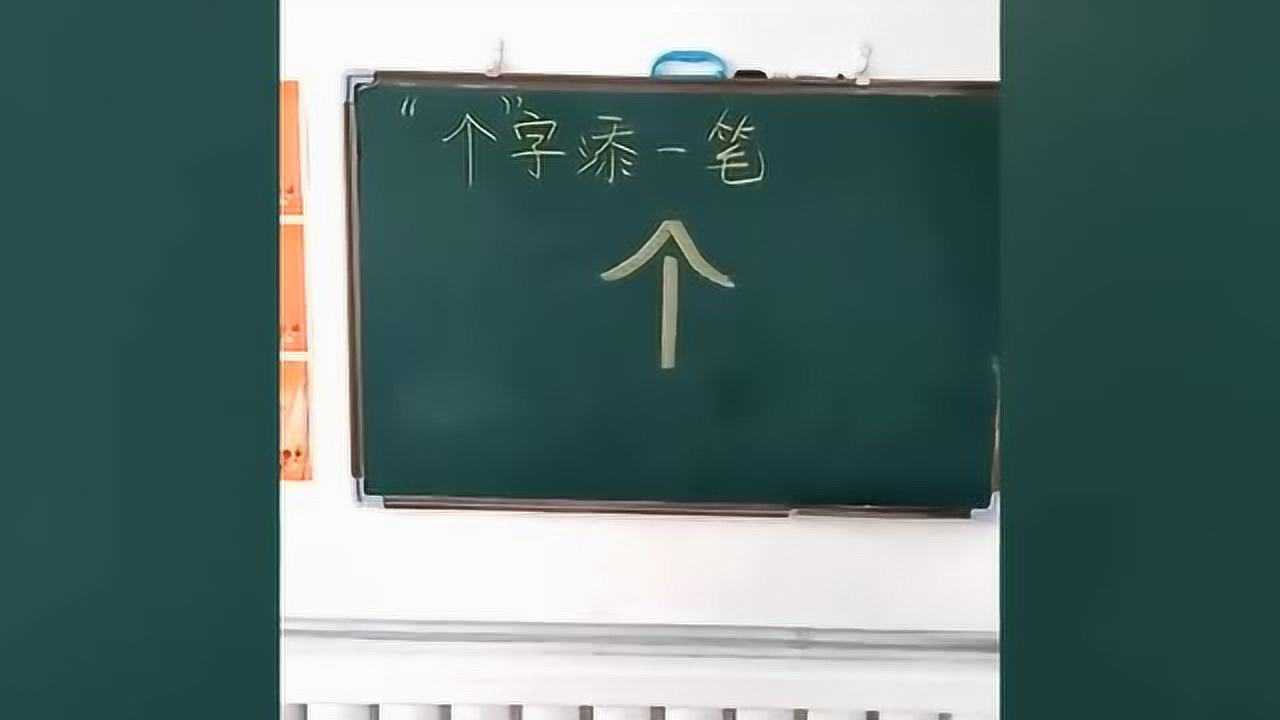 “个”字添一笔
个